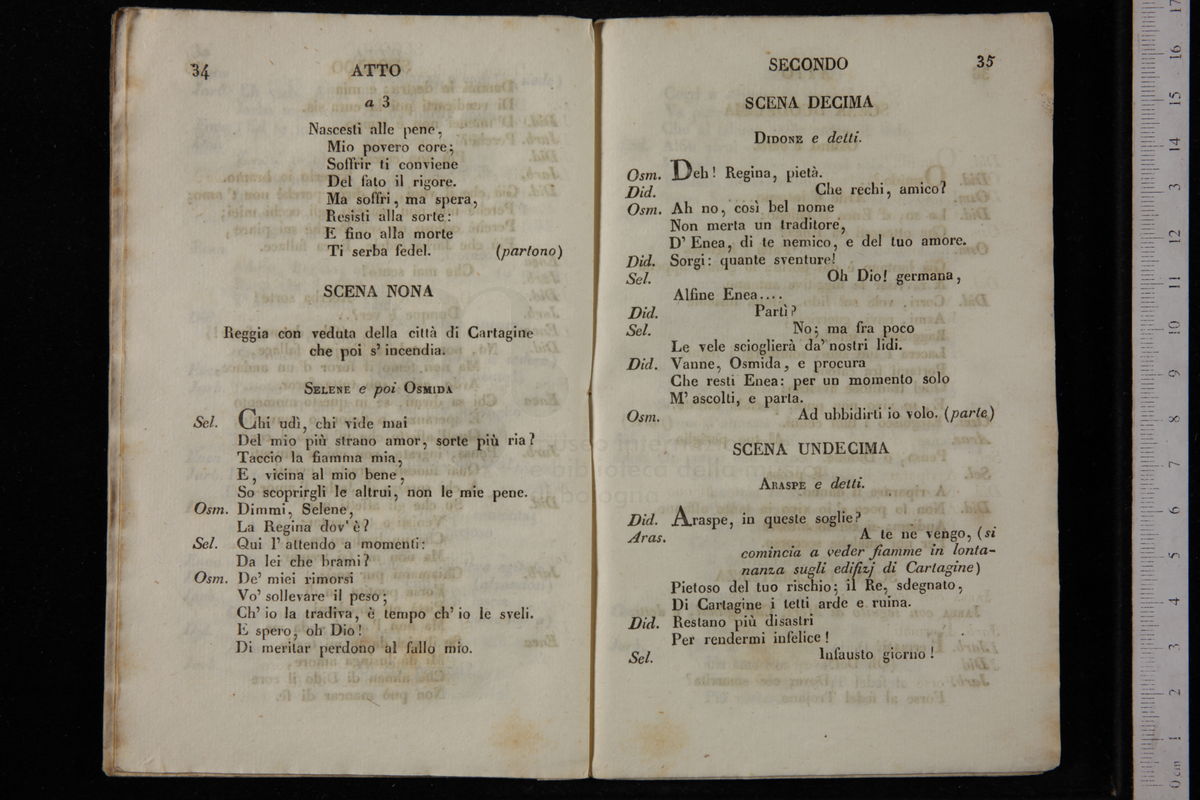 34 ATTO
a 3
Nascesti alle pene,
Mio povero core;
Soffrir ti conviene
Del fato il rigore.
Ma soffri, ma spera,
Resisti alla sorte:
E fino alla morte
Ti serba fedel. (partono)
SCENA NONA
Reggia con veduta della città di Cartagine
che poi s' incendia.
SELENE e poi OSMIDA
Sel. Chi udì, chi vide mai
Del mio più strano amor, sorte più ria?
Taccio la fiamma mia,
E, vicina al mio bene,
So scoprirgli le altrui, non le mie pene.
Osm. Dimmi, Selene,
La Regina dov' è?
Sel. Qui l' attendo a momenti:
Da lei che brami?
Osm. De' miei rimorsi
Vo' sollevare il peso;
Ch' io la tradiva, è tempo ch' io le sveli.
E spero, oh Dio!
Di meritar perdono al fallo mio.
SECONDO 35
SCENA DECIMA
DIDONE e detti.
Osm. Deh! Regina, pietà.
Did. Che rechi, amico?
Osm. Ah no, così bel nome
Non merta un traditore,
D' Enea, di te nemico, e del tuo amore.
Did. Sorgi: quante sventure!
Sel. Oh Dio! germana,
Alfine Enea....
Did. Partì?
Sel. No; ma fra poco
Le vele scioglierà da' nostri lidi.
Did. Vanne, Osmida, e procura
Che resti Enea: per un momento solo
M' ascolti, e parta.
Osm. Ad ubbidirti io volo. (parte)
SCENA UNDECIMA
ARASPE e detti.
Did. Araspe, in queste soglie?
Aras. A te ne vengo, (si
comincia a veder fiamme in lonta-
nanza sugli edifizj di Cartagine)
Pietoso del tuo rischio; il Re, sdegnato,
Di Cartagine i tetti arde e ruina.
Did. Restano più disastri
Per rendermi infelice!
Sel. Infausto giorno!
0 cm 1 2 3 4 5 6 7 8 9 10 11 12 13 14 15 16 17